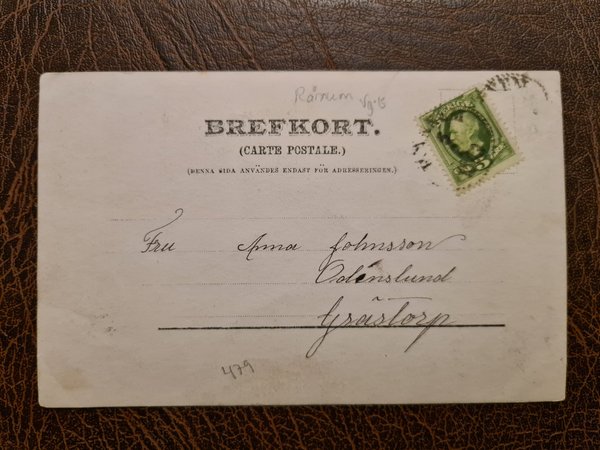 Rånum
Vg-15
BREFKORT.
(CARTE POSTALE.)
(DENNA SIDA ANVÄNDES ENDAST FÖR ADRESSERINGEN.)
SVERIGE
Fru Anna Johnsson
Odenslund
Grästorp
479